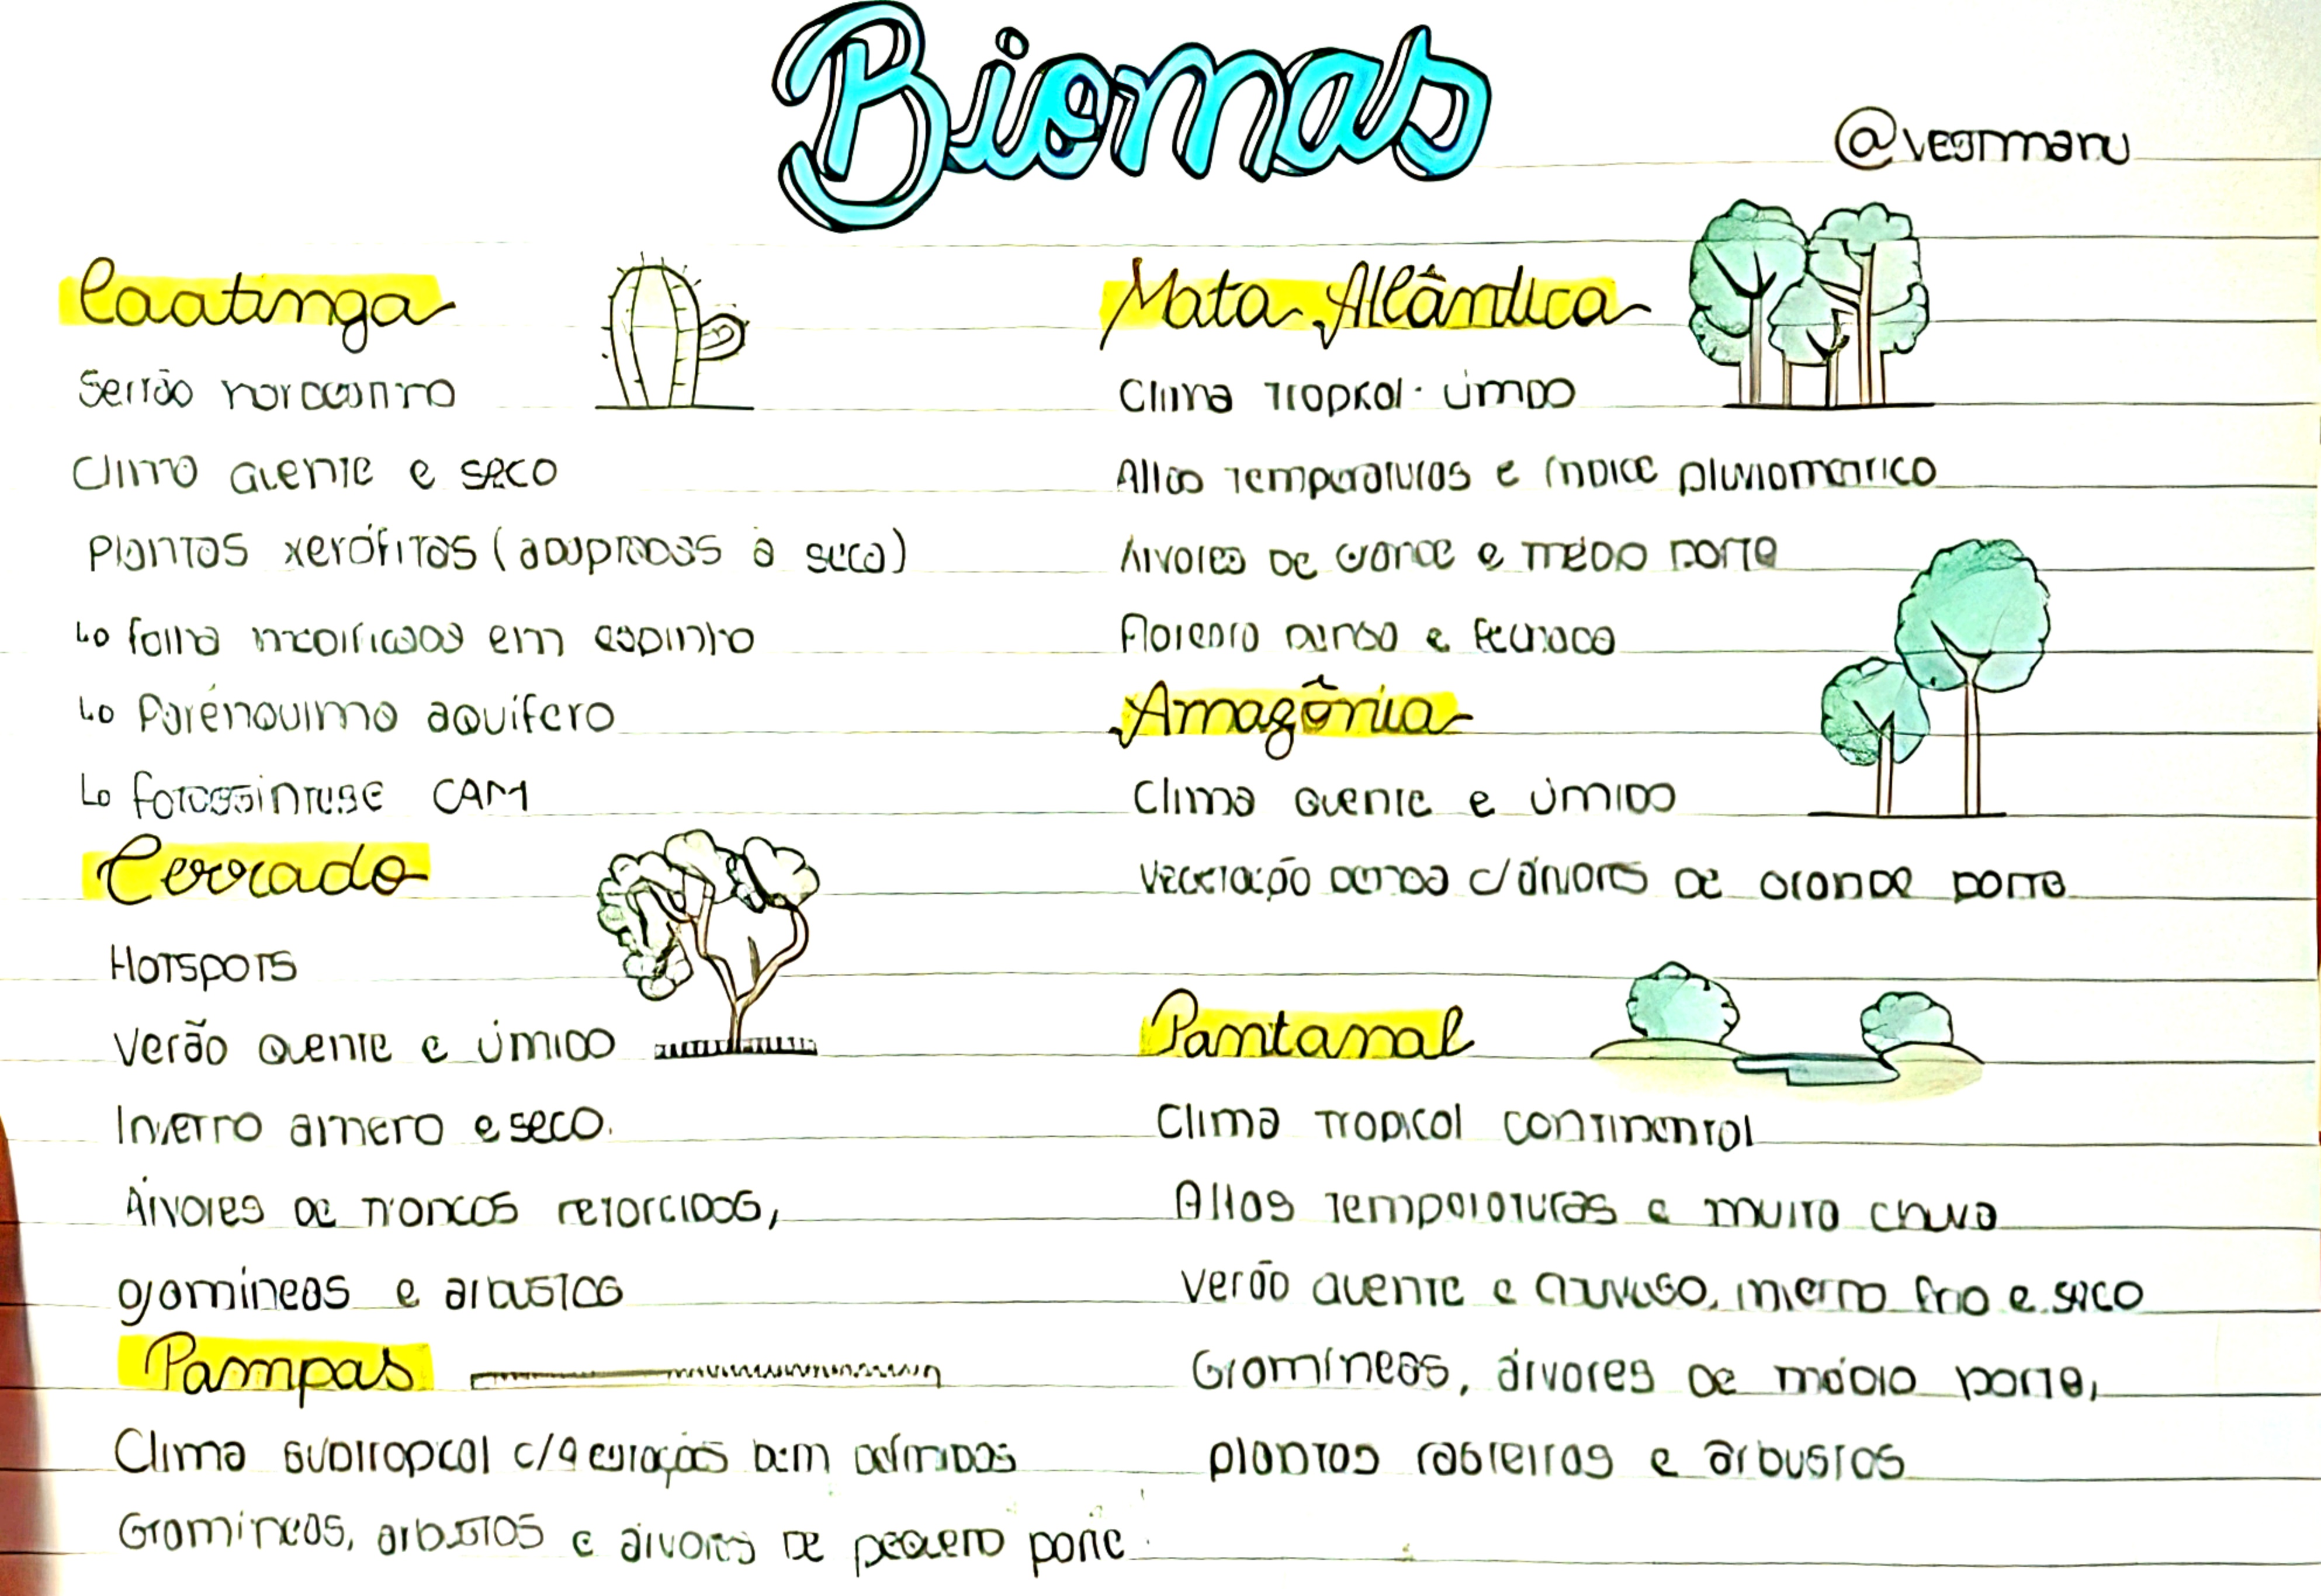 Biomas
@vestmanu
Caatinga
Sertão nordestino
Clima quente e seco
Plantas xerófitas (adaptadas à seca)
Lo folha modificadas em espinho
Lo Parênquima aquífero
Lo fotossíntese CAM
Cerrado
Hotspots
Verão quente e úmido
Inverno ameno e seco.
Árvores de troncos retorcidos,
gramíneas e arbustos
Pampas
Clima subtropical c/4 estações bem definidas
Gramíneas, arbustos e árvores de pequeno porte.
Mata Atlântica
Clima Tropical úmido
Altas temperaturas e índice pluviométrico
Árvores de grande e médio porte
Floresta densa e fechada
Amazônia
Clima quente e úmido
Vegetação densa c/ árvores de grande porte
Pantanal
Clima tropical continental
Altas temperaturas e muita chuva
Verão quente e chuvoso, inverno frio e seco
Gramíneas, árvores de médio porte,
plantas rasteiras e arbustos